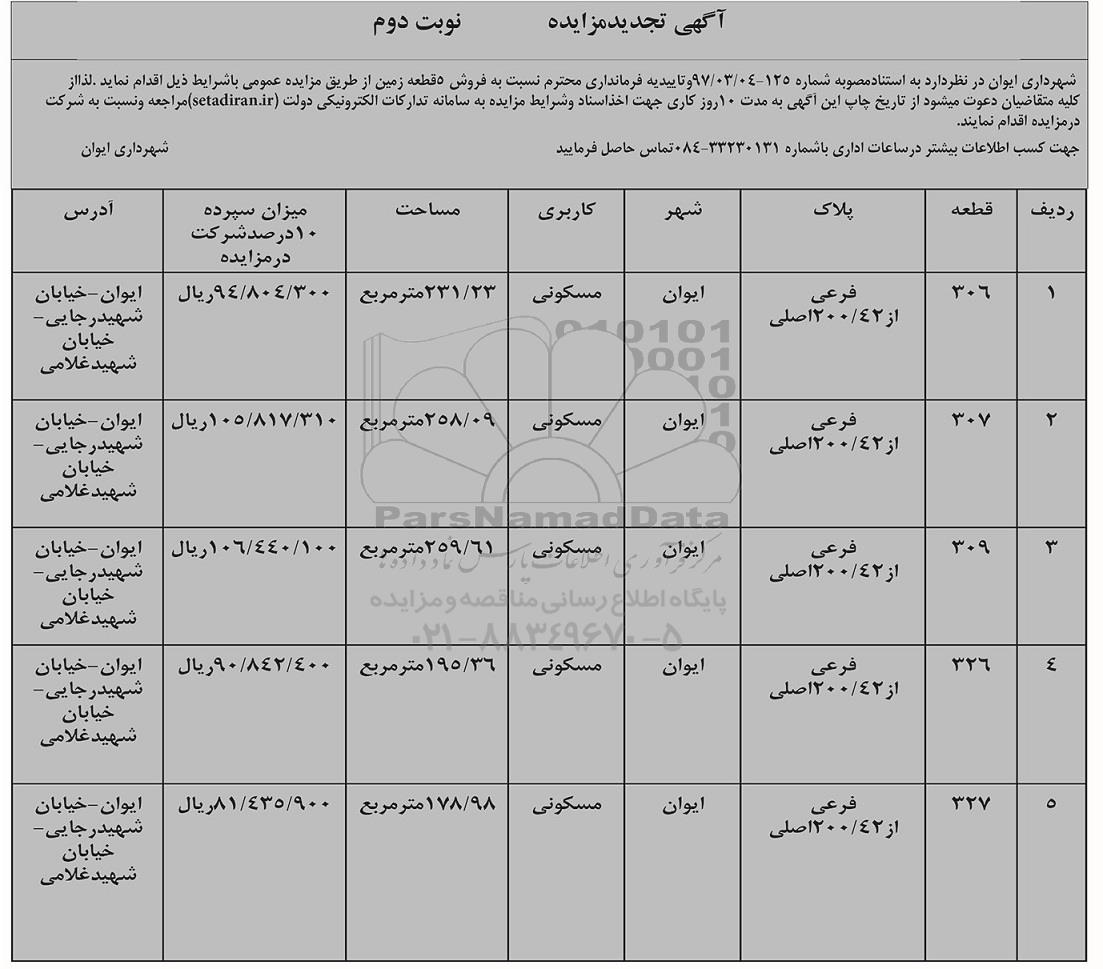 آگهی تجدیدمزایده نوبت دوم
شهرداری ایوان در نظردارد به استنادمصوبه شماره ۱۲۵-۹۷/۰۳/۰۴وتاییدیه فرمانداری محترم نسبت به فروش ۵قطعه زمین از طریق مزایده عمومی باشرایط ذیل اقدام نماید .لذااز
کلیه متقاضیان دعوت میشود از تاریخ چاپ این آگهی به مدت ۱۰روز کاری جهت اخذاسناد وشرایط مزایده به سامانه تدارکات الکترونیکی دولت (setadiran.ir)مراجعه ونسبت به شرکت
درمزایده اقدام نمایند.
جهت کسب اطلاعات بیشتر درساعات اداری باشماره ۳۳۲۳۰۱۳۱-۰۸۴تماس حاصل فرمایید شهرداری ایوان
ردیف قطعه پلاک شهر کاربری مساحت میزان سپرده آدرس
۱۰درصدشرکت
درمزایده
۱ ۳۰۶ فرعی ایوان مسکونی ۲۳۱/۲۳مترمربع ۹٤/۸۰٤/۳۰۰ریال ایوان-خیابان
از۲۰۰/٤۲اصلی شهیدرجایی-
خیابان
شهیدغلامی
۲ ۳۰۷ فرعی ایوان مسکونی ۲۵۸/۰۹مترمربع ۱۰۵/۸۱۷/۳۱۰ریال ایوان-خیابان
از۲۰۰/٤۲اصلی شهیدرجایی-
خیابان
شهیدغلامی
۳ ۳۰۹ فرعی ایوان مسکونی ۲۵۹/۶۱مترمربع ۱۰۶/٤٤۰/۱۰۰ریال ایوان-خیابان
از۲۰۰/٤۲اصلی شهیدرجایی-
خیابان
شهیدغلامی
٤ ۳۲۶ فرعی ایوان مسکونی ۱۹۵/۳۶مترمربع ۹۰/۸٤۲/٤۰۰ریال ایوان-خیابان
از۲۰۰/٤۲اصلی شهیدرجایی-
خیابان
شهیدغلامی
۵ ۳۲۷ فرعی ایوان مسکونی ۱۷۸/۹۸مترمربع ۸۱/٤۳۵/۹۰۰ریال ایوان-خیابان
از۲۰۰/٤۲اصلی شهیدرجایی-
خیابان
شهیدغلامی
010101
0001
10
1
0
ParsNamadData
مرکز فرآوری اطلاعات پارس نماد داده ها
پایگاه اطلاع رسانی مناقصه و مزایده
۰۲۱-۸۸۳٤۹۶۷۰-۵